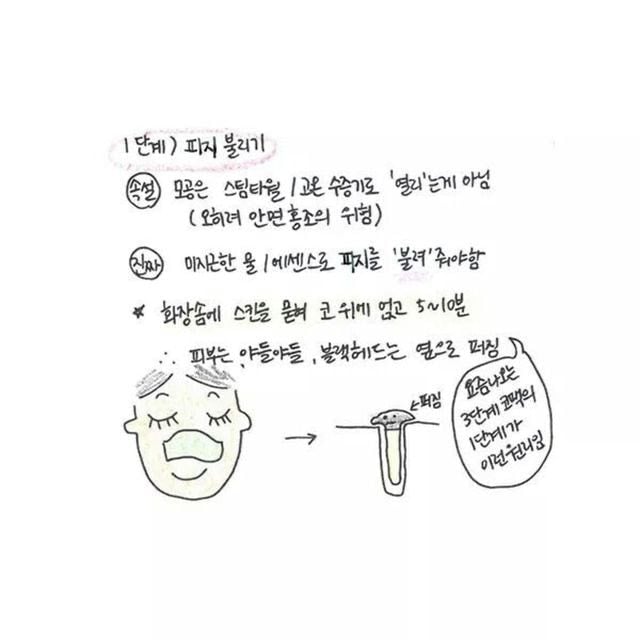 1단계) 피지 불리기
속설 모공은 스팀타월 / 고온 수증기로 '열리'는게 아님
(오히려 안면홍조의 위험)
진짜 미지근한 물 / 에센스로 피지를 '불려'줘야함
* 화장솜에 스킨을 묻혀 코 위에 얹고 5~10분
∴ 피부는 야들야들, 블랙헤드는 옆으로 퍼짐
←퍼짐
요즘나오는
3단계 코팩의
1단계가
이런원리임